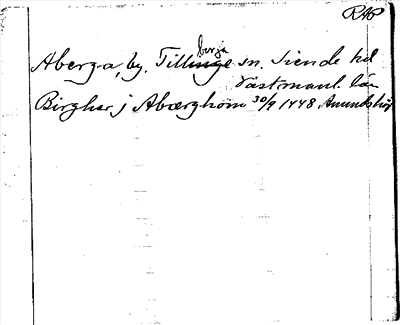 RAP
Aberga, by. Tillinge berga sn. Siende hd
Västmanl. län
Birgher j Abærghom 30/9 1448 Amundshof